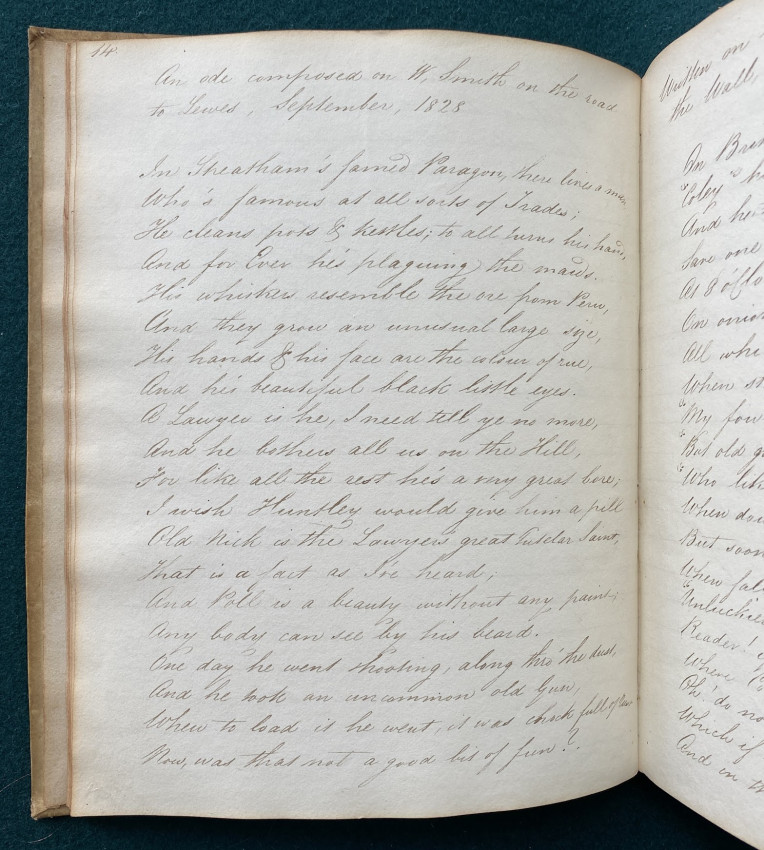 14.
An ode composed on W. Smith on the road
to Lewes, September, 1828
In Streatham's famed Paragon, there lives a man,
Who's famous at all sorts of Trades;
He cleans pots & kettles; to all turns his hand,
And for Ever he's plaguing the maids.
His whiskers resemble the ore from Peru,
And they grow an unusual large size,
His hands & his face are the colour of rue,
And his beautiful black little eyes.
A Lawyer is he, I need tell ye no more,
And he bothers all us on the Hill,
For like all the rest he's a very great bore;
I wish Huntley would give him a pill
Old Nick is the Lawyer's great Tutelar Saint,
That is a fact as I've heard;
And Poll is a beauty without any paint;
Any body can see by his beard.
One day he went shooting, along thro' the dust,
And he took an uncommon old Gun,
When to load it he went, it was chock full of
Now, was that not a good bit of fun?
Written on
the Wall,
On
"Coley"
And he
Save one
At 8 o'Clo
On
All whi
When
"My fow
"But old
"Who lik
When dow
But soon
When fal
Unluckie
Reader!
Where
Oh! do no
Which if
And in th